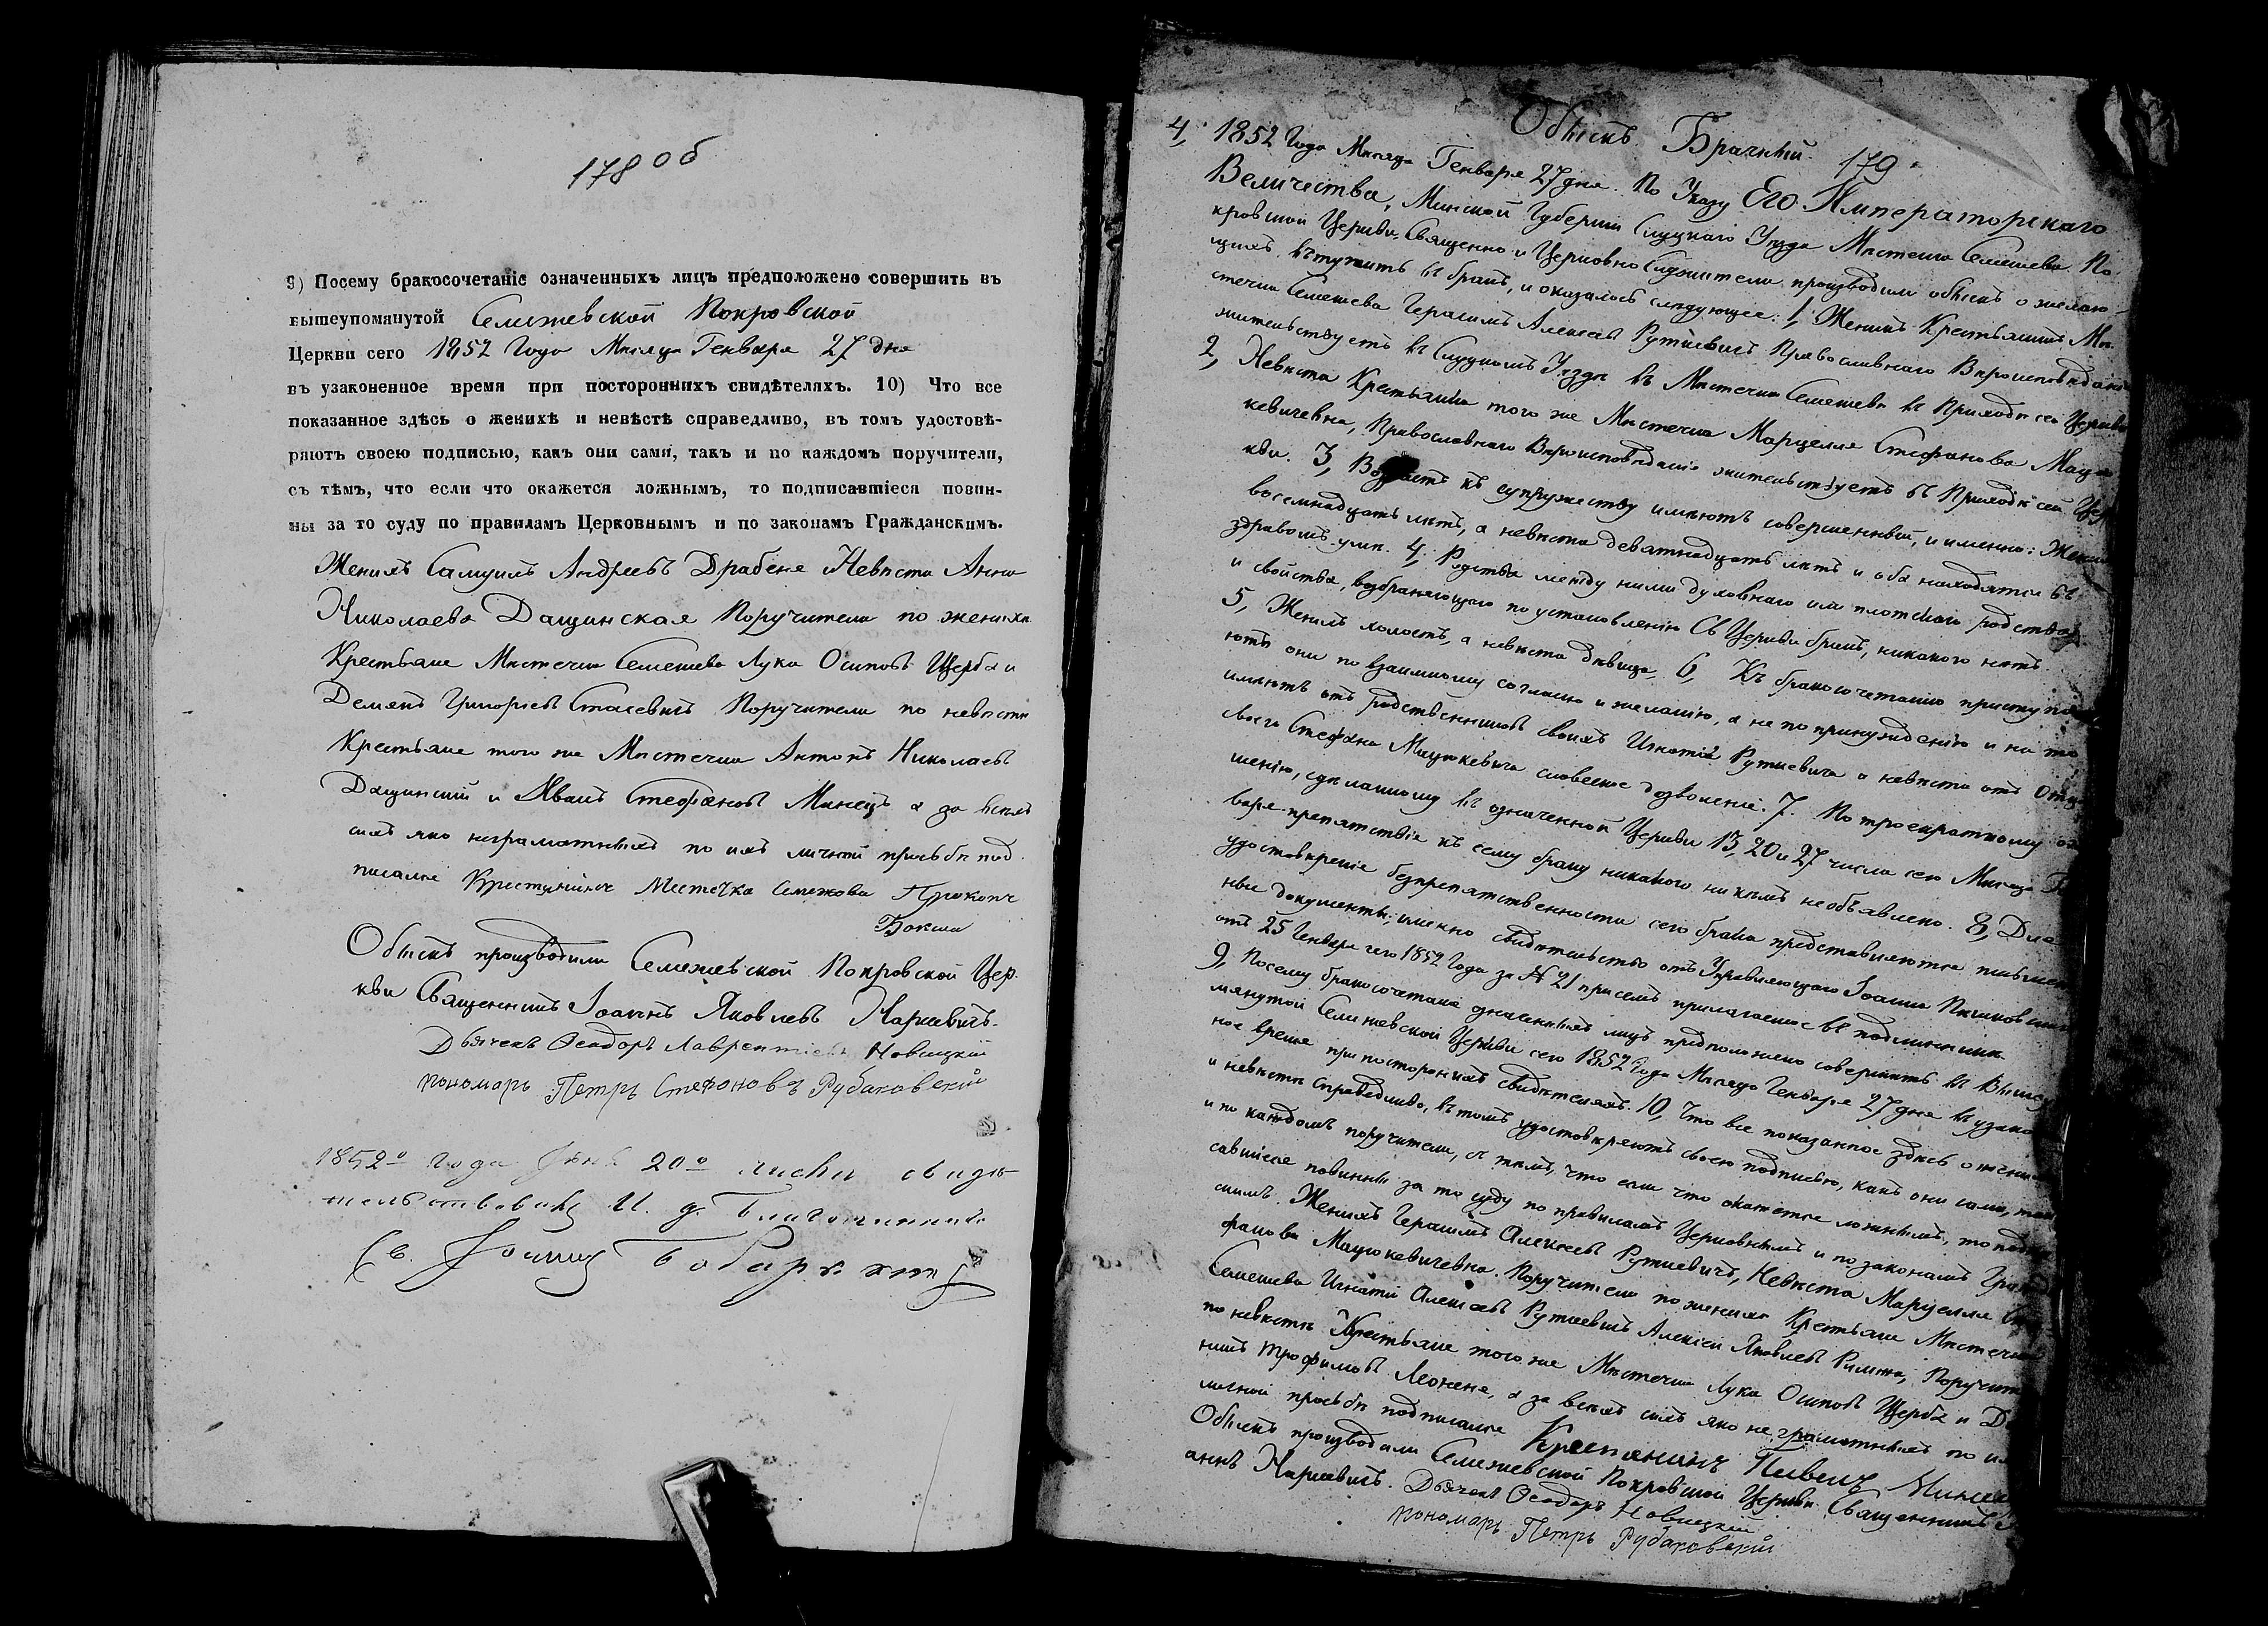 178 об
9) Посему бракосочетаніе означенныхъ лицъ предположено совершить въ
вышеупомянутой Семежевской Покровской
Церкви сего 1852 Года Мѣсяца Генваря 27 дня
въ узаконенное время при постороннихъ свидѣтеляхъ. 10) Что все
показанное здѣсь о женихѣ и невѣстѣ справедливо, въ томъ удостовѣ-
ряютъ своею подписью, какъ они сами, такъ и по каждомъ поручители,
съ тѣмъ, что если что окажется ложнымъ, то подписавшіеся повин-
ны за то суду по правиламъ Церковнымъ и по законамъ Гражданскимъ.
Женихъ Самуилъ Андреевъ Драбеня Невѣста Анна
Николаева Дащинская Поручители по женихѣ
Крестьяне Мѣстечка Семежева Лука Осиповъ Щерба и
Демянъ Григорьевъ Стасевичъ Поручители по невѣстѣ
Крестьяне того же Мѣстечка Антонъ Николаевъ
Дащинскій и Иванъ Стефановъ Минецъ а за всѣхъ
сихъ яко неграмотныхъ по ихъ личной прозьбѣ под-
писался Крестьянинъ Местечка Семежова Прокопъ
Бокша
Обыскъ производили Семежевской Покровской Цер-
кви Священникъ Іоаннъ Яковлевъ Наркевичъ.
Дьячекъ Ѳеодоръ Лаврентіевъ Новицкій
пономарь Петръ Стефановъ Рубановскій
1852о года 20о числа свидѣ-
тельствовалъ И. д. Благочиннаго
Св.
Обыскъ Брачный. 179
4, 1852 Года Мѣсяца Генваря 27 дня. По Указу Его Императорскаго
Величества, Минской Губерніи Слуцкаго Уѣзда Мѣстечка Семежева По-
кровской Церкви, Священно и Церковно Служители производили обыскъ о желаю-
щихъ вступить въ бракъ, и оказалось слѣдующее: 1, Женихъ Крестьянинъ Мѣ-
стечка Семежева Герасимъ Алексѣевъ Руткевичъ Православнаго Вѣроисповѣданія
жительствуетъ въ Слуцкомъ Уѣздѣ въ Мѣстечкѣ Семежевѣ въ Приходѣ сей Церкви
2, Невѣста Крестьянка того же Мѣстечка Марцелля Стефанова Мацю-
кевичевна, Православнаго Вѣроисповѣданія жительствуетъ въ Приходѣ сей Цер-
кви. 3, Возрастъ къ супружеству имѣютъ совершенный, и именно: Женихъ
восемнадцать лѣтъ, а невѣста девятнадцать лѣтъ и оба находятся въ
здравомъ умѣ. 4, Родства между ними духовнаго или плотскаго родства
и свойства, возбраняющаго по установленію Св Церкви бракъ, никакого нѣтъ.
5, Женихъ холостъ, а невѣста дѣвица, 6, Къ бракосочетанію приступа-
ютъ они по взаимному согласію и желанію, а не по принужденію и на то
имѣютъ отъ родственниковъ своихъ Игнатія Руткевича а невѣста отъ Отца
своего Стефана Мацюкевича словесное дозволеніе. 7. По троекратному ог-
лашенію, сдѣланному въ означенной Церкви 13, 20 и 27 числа сего Мѣсяца Ген-
варя препятствія къ сему браку никакого никѣмъ необъявлено. 8, Для
удостовѣренія безпрепятственности сего брака представляются письмен-
ные документы, именно свидѣтельство отъ Управляющаго Іоанна
отъ 25 Генваря сего 1852 Года за № 21 при семъ прилагаемое въ подлинникѣ.
9, Посему бракосочетаніе означенныхъ лицъ предположено совершить въ Вышеу-
мянутой Семежевской Церкви сего 1852 Года Мѣсяца Генваря 27 дня въ узако
ное время при постороннихъ свидѣтеляхъ. 10, Что все показанное здѣсь о женихѣ
и невѣстѣ справедливо, въ томъ удостовѣряютъ своею подписью, какъ они сами, такъ
и по каждомъ поручители, съ тѣмъ, что если что окажется ложнымъ, то подпи-
савшіеся повинны за то суду по правиламъ Церковнымъ и по законамъ Граждан
скимъ. Женихъ Герасимъ Алексѣевъ Руткевичъ, Невѣста Марцелля Сте-
фанова Мацюкевичевна. Поручители по женихѣ Крестьяне Мѣстечка
Семежева Игнатій Алексѣевъ Руткевичъ Алексѣй Яковлевъ Поручители
по невѣстѣ Крестьяне того же Мѣстечка Лука Осиповъ Щерба и
Трофимовъ а за всѣхъ сихъ яко неграмотныхъ по их
личной прозьбѣ подписался Крестянинъ Павелъ
Обыскъ производили Семежевской Покровской Церкви Священникъ Іо-
аннъ Наркевичъ. Дьячекъ Ѳеодоръ Новицкій
пономарь Петръ Рубановскій